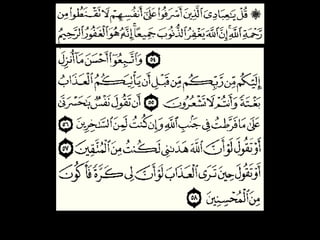 ۞ قُلْ يَـٰعِبَادِىَ ٱلَّذِينَ أَسْرَفُوا۟ عَلَىٰٓ أَنفُسِهِمْ لَا تَقْنَطُوا۟ مِن
رَّحْمَةِ ٱللَّهِ إِنَّ ٱللَّهَ يَغْفِرُ ٱلذُّنُوبَ جَمِيعًا إِنَّهُۥ هُوَ ٱلْغَفُورُ ٱلرَّحِيمُ
٥٤ وَٱتَّبِعُوٓا۟ أَحْسَنَ مَآ أُنزِلَ
إِلَيْكُم مِّن رَّبِّكُم مِّن قَبْلِ أَن يَأْتِيَكُمُ ٱلْعَذَابُ
بَغْتَةً وَأَنتُمْ لَا تَشْعُرُونَ ٥٥ أَن تَقُولَ نَفْسٌ يَـٰحَسْرَتَىٰ
عَلَىٰ مَا فَرَّطتُ فِى جَنۢبِ ٱللَّهِ وَإِن كُنتُ لَمِنَ ٱلسَّـٰخِرِينَ ٥٦
أَوْ تَقُولَ لَوْ أَنَّ ٱللَّهَ هَدَىٰنِى لَكُنتُ مِنَ ٱلْمُتَّقِينَ ٥٧
أَوْ تَقُولَ حِينَ تَرَى ٱلْعَذَابَ لَوْ أَنَّ لِى كَرَّةً فَأَكُونَ
مِنَ ٱلْمُحْسِنِينَ ٥٨